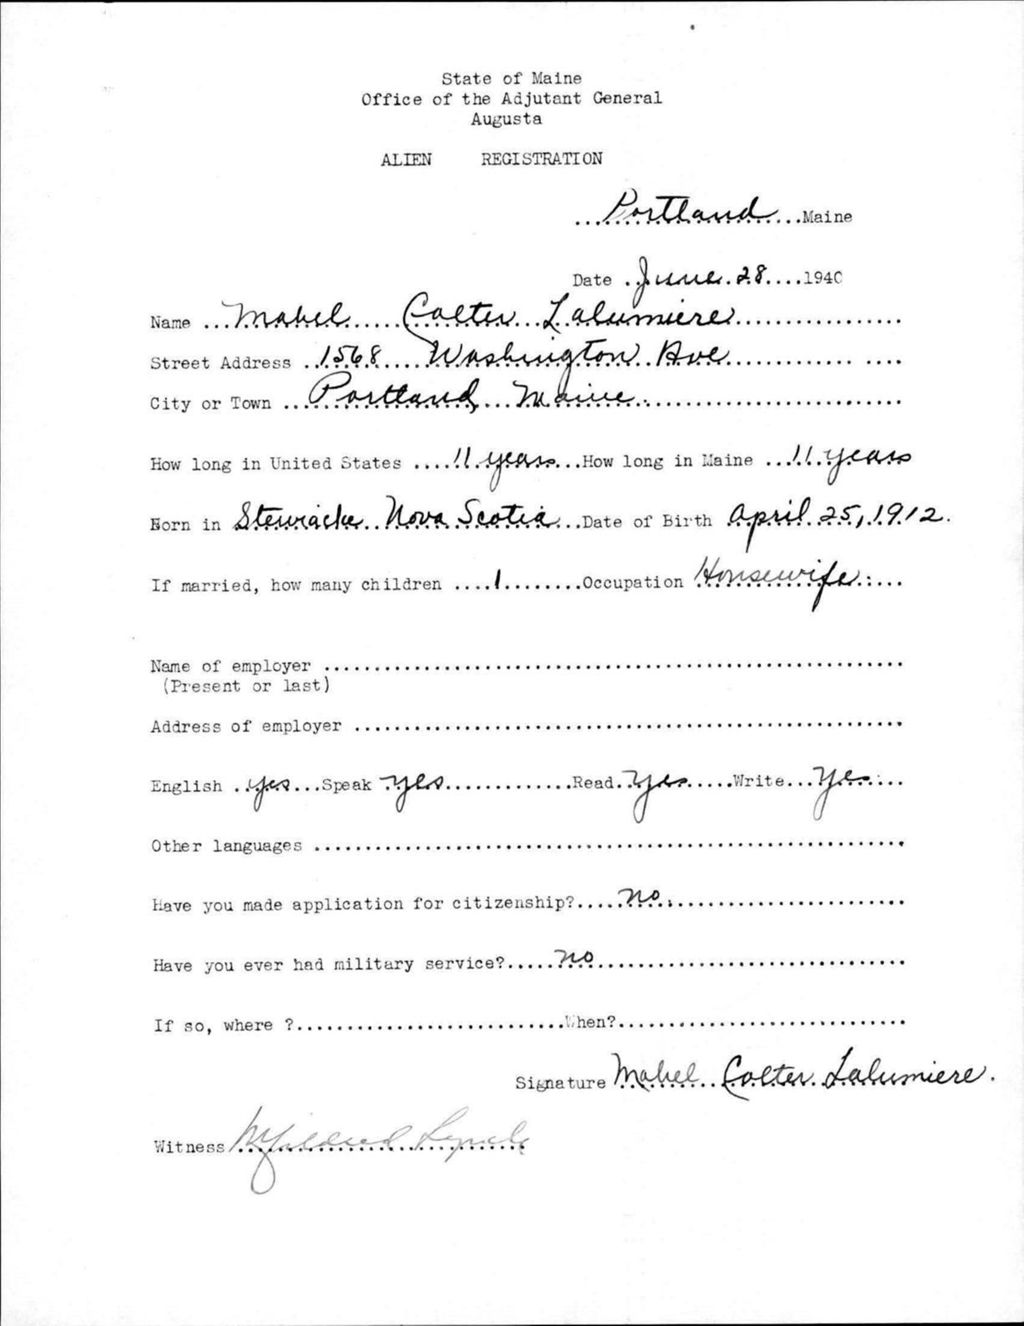 State of Maine
Office of the Adjutant General
Augusta
ALIEN REGISTRATION
...Portland...Maine
Date ..June.28....1940
Name ...Mabel.....Colter...Lalumiere..................
Street Address ..1568.....Washington Ave.............. ....
City or Town ...Portland,...Maine...............................
How long in United States ....11.years...How long in Maine ...11.years
Born in Stewiacke..Nova Scotia...Date of Birth April 25, 1912.
If married, how many children ....1.........Occupation Housewife....
Name of employer ....................................................................
(Present or last)
Address of employer ................................................................
English ..yes...Speak yes...............Read..yes......Write...yes....
Other languages .....................................................................
Have you made application for citizenship?.....no............................
Have you ever had military service?.....no....................................
If so, where ?................................When?..................................
Signature Mabel..Colter.Lalumiere.
Witness Mildred Lynch